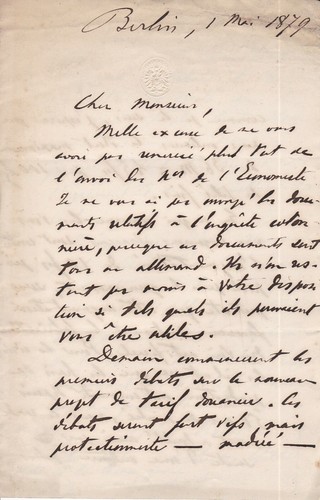 Berlin, 1 Mai 1879
Cher Monsieur,
Mille excuse de ne vous
avoir pas remercié plus tôt de
l'envoi des Nos de l'Economiste
Je ne vous ai pas envoyé les docu-
ments relatifs à l'enquête coton-
nière, puisque ces documents sont
tous en allemand. Ils n'en res-
tent pas moins à votre disposi-
tion si tels quels ils pouvaient
vous être utiles.
Demain commencent les
premiers débats sur le nouveau
projet de tarif douanier. Ces
débats seront fort vifs, mais
protectionniste —